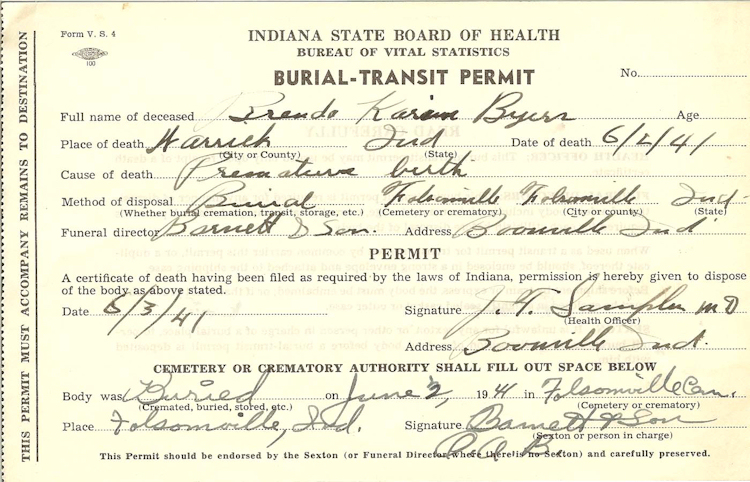 Form V. S. 4
100
INDIANA STATE BOARD OF HEALTH
BUREAU OF VITAL STATISTICS
BURIAL-TRANSIT PERMIT
No.
Full name of deceased Brenda Karin Byers Age
Place of death Warrick Ind Date of death 6/2/41
(City or County) (State)
Cause of death Premature birth
Method of disposal Burial Folsomville Folsomville Ind
(Whether burial cremation, transit, storage, etc.) (Cemetery or crematory) (City or county) (State)
Funeral director Barnett & Son Address Boonville Ind
PERMIT
A certificate of death having been filed as required by the laws of Indiana, permission is hereby given to dispose
of the body as above stated.
Date 6/3/41 Signature J. T. MD
(Health Officer)
Address Boonville Ind.
CEMETERY OR CREMATORY AUTHORITY SHALL FILL OUT SPACE BELOW
Body was Buried on June 2, 1941 in Folsomville Cem.
(Cremated, buried, stored, etc.) (Cemetery or crematory)
Place Folsomville, Ind. Signature Barnett & Son
(Sexton or person in charge)
This Permit should be endorsed by the Sexton (or Funeral Director where there is no Sexton) and carefully preserved.
THIS PERMIT MUST ACCOMPANY REMAINS TO DESTINATION